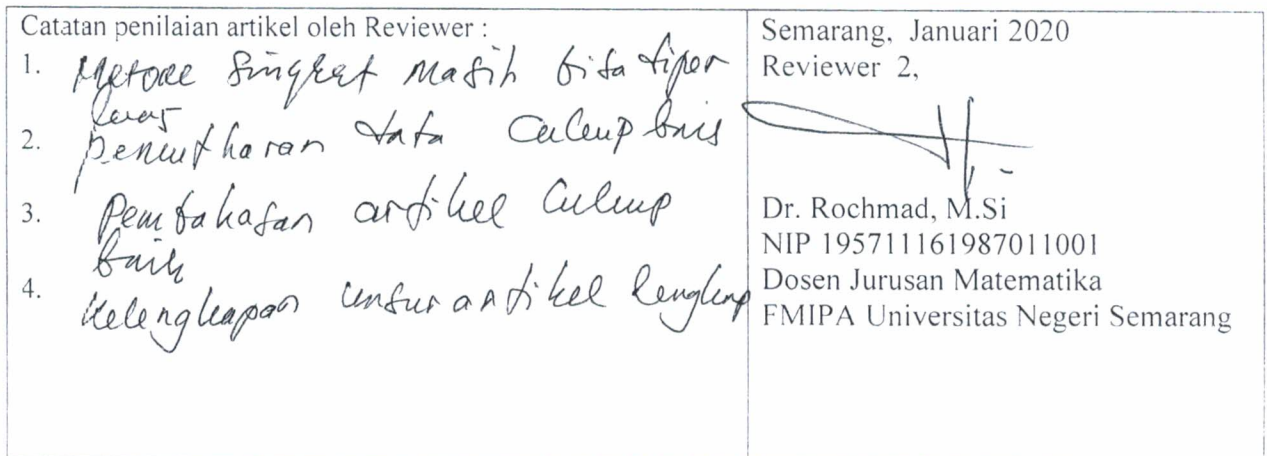 Catatan penilaian artikel oleh Reviewer :
1. Metode singkat masih bisa diper
luas
2. Pemutharan data cukup baik
3. Pembahasan artikel cukup
baik
4. Kelengkapan unsur artikel lengkap
Semarang, Januari 2020
Reviewer 2,
Dr. Rochmad, M.Si
NIP 195711161987011001
Dosen Jurusan Matematika
FMIPA Universitas Negeri Semarang